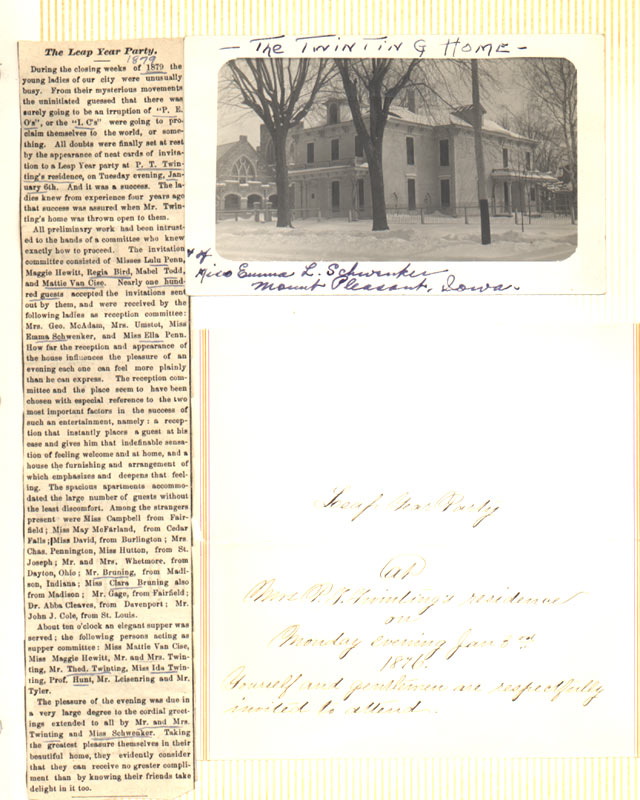 The Leap Year Party.
1879
During the closing weeks of 1879 the
young ladies of our city were unusually
busy. From their mysterious movements
the uninitiated guessed that there was
surely going to be an irruption of "P. E.
O's", or the "I. C's" were going to pro-
claim themselves to the world, or some-
thing. All doubts were finally set at rest
by the appearance of neat cards of invita-
tion to a Leap Year party at P. T. Twin-
ting's residence, on Tuesday evening, Jan-
uary 6th. And it was a success. The la-
dies knew from experience four years ago
that success was assured when Mr. Twin-
ting's home was thrown open to them.
All preliminary work had been intrust-
ed to the hands of a committee who knew
exactly how to proceed. The invitation
committee consisted of Misses Lulu Penn,
Maggie Hewitt, Regia Bird, Mabel Todd,
and Mattie Van Cise. Nearly one hund-
red guests accepted the invitations sent
out by them, and were received by the
following ladies as reception committee:
Mrs. Geo. McAdam, Mrs. Umstot, Miss
Emma Schwenker, and Miss Ella Penn.
How far the reception and appearance of
the house influences the pleasure of an
evening each one can feel more plainly
than he can express. The reception com-
mittee and the place seem to have been
chosen with especial reference to the two
most important factors in the success of
such an entertainment, namely: a recep-
tion that instantly places a guest at his
ease and gives him that indefinable sensa-
tion of feeling welcome and at home, and a
house the furnishing and arrangement of
which emphasizes and deepens that feel-
ing. The spacious apartments accommo-
dated the large number of guests without
the least discomfort. Among the strangers
present were Miss Campbell from Fair-
field; Miss May McFarland, from Cedar
Falls; Miss David, from Burlington; Mrs
Chas. Pennington, Miss Hutton, from St.
Joseph; Mr. and Mrs. Whetmore, from
Dayton, Ohio; Mr. Bruning, from Madi-
son, Indiana; Miss Clara Bruning also
from Madison; Mr. Gage, from Fairfield;
Dr. Abba Cleaves, from Davenport; Mr.
John J. Cole, from St. Louis.
About ten o'clock an elegant supper was
served; the following persons acting as
supper committee: Miss Mattie Van Cise,
Miss Maggie Hewitt, Mr. and Mrs. Twin-
ting, Mr. Thed. Twinting, Miss Ida Twin-
ting, Prof. Hunt, Mr. Leisenring and Mr.
Tyler.
The pleasure of the evening was due in
a very large degree to the cordial greet-
ings extended to all by Mr. and Mrs.
Twinting and Miss Schwenker. Taking
the greatest pleasure themselves in their
beautiful home, they evidently consider
that they can receive no greater compli-
ment than by knowing their friends take
delight in it too.
- The TWINTING HOME -
& of
Miss Emma L. Schwenker
Mount Pleasant, Iowa.
Leap Year Party
At
Mr. P. T. Twinting's residence
on
Monday evening Jan 3rd
1876.
Yourself and gentlemen are respectfully
invited to attend.